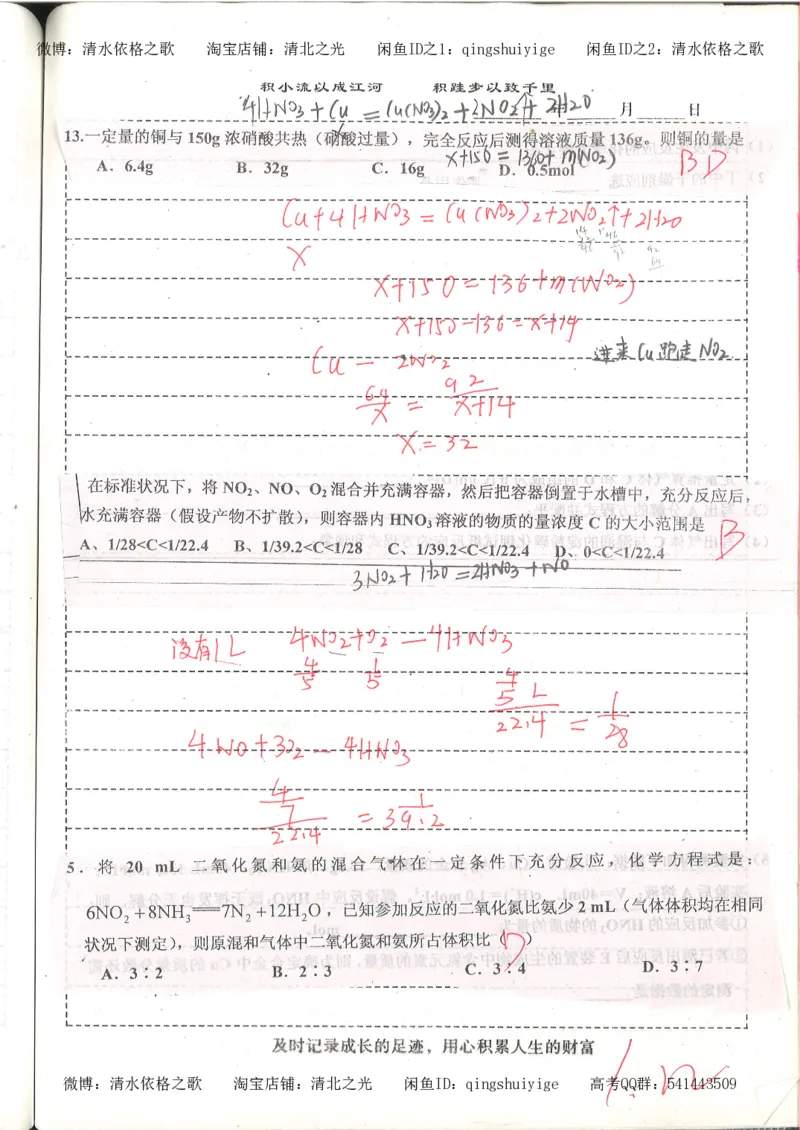 微博：清水依格之歌 淘宝店铺：清北之光 闲鱼ID之1：qingshuiyige 闲鱼ID之2：清水依格之歌
积小流以成江河 积跬步以致千里
4HNO3+Cu=Cu(NO3)2+2NO2↑+2H2O 月 日
13.一定量的铜与150g浓硝酸共热（硝酸过量），完全反应后测得溶液质量136g。则铜的量是
x+150=136+m(NO2) BD
A．6.4g B．32g C．16g D．0.5mol
Cu+4HNO3=Cu(NO3)2+2NO2↑+2H2O
X
X+150=136+m(NO2)
X+150-136=X+14
进来Cu跑走NO2
Cu - 2NO2
64/X = 92/X+14
X=32
在标准状况下，将NO2、NO、O2混合并充满容器，然后把容器倒置于水槽中，充分反应后，
水充满容器（假设产物不扩散），则容器内HNO3溶液的物质的量浓度C的大小范围是
B
A、1/28<C<1/22.4 B、1/39.2<C<1/28 C、1/39.2<C<1/22.4 D、0<C<1/22.4
3NO2+H2O=2HNO3+NO
没有1L 4NO2+O2—4HNO3
4/5 1/5
4/5 L/22.4 = 1/28
4NO+3O2—4HNO3
4/7/22.4 = 1/39.2
5．将 20 mL 二氧化氮和氨的混合气体在一定条件下充分反应，化学方程式是：
6NO2+8NH3══7N2+12H2O，已知参加反应的二氧化氮比氨少2 mL（气体体积均在相同
状况下测定），则原混和气体中二氧化氮和氨所占体积比（D）
A．3∶2 B．2∶3 C．3∶4 D．3∶7
及时记录成长的足迹，用心积累人生的财富
微博：清水依格之歌 淘宝店铺：清北之光 闲鱼ID：qingshuiyige 高考QQ群：541443509